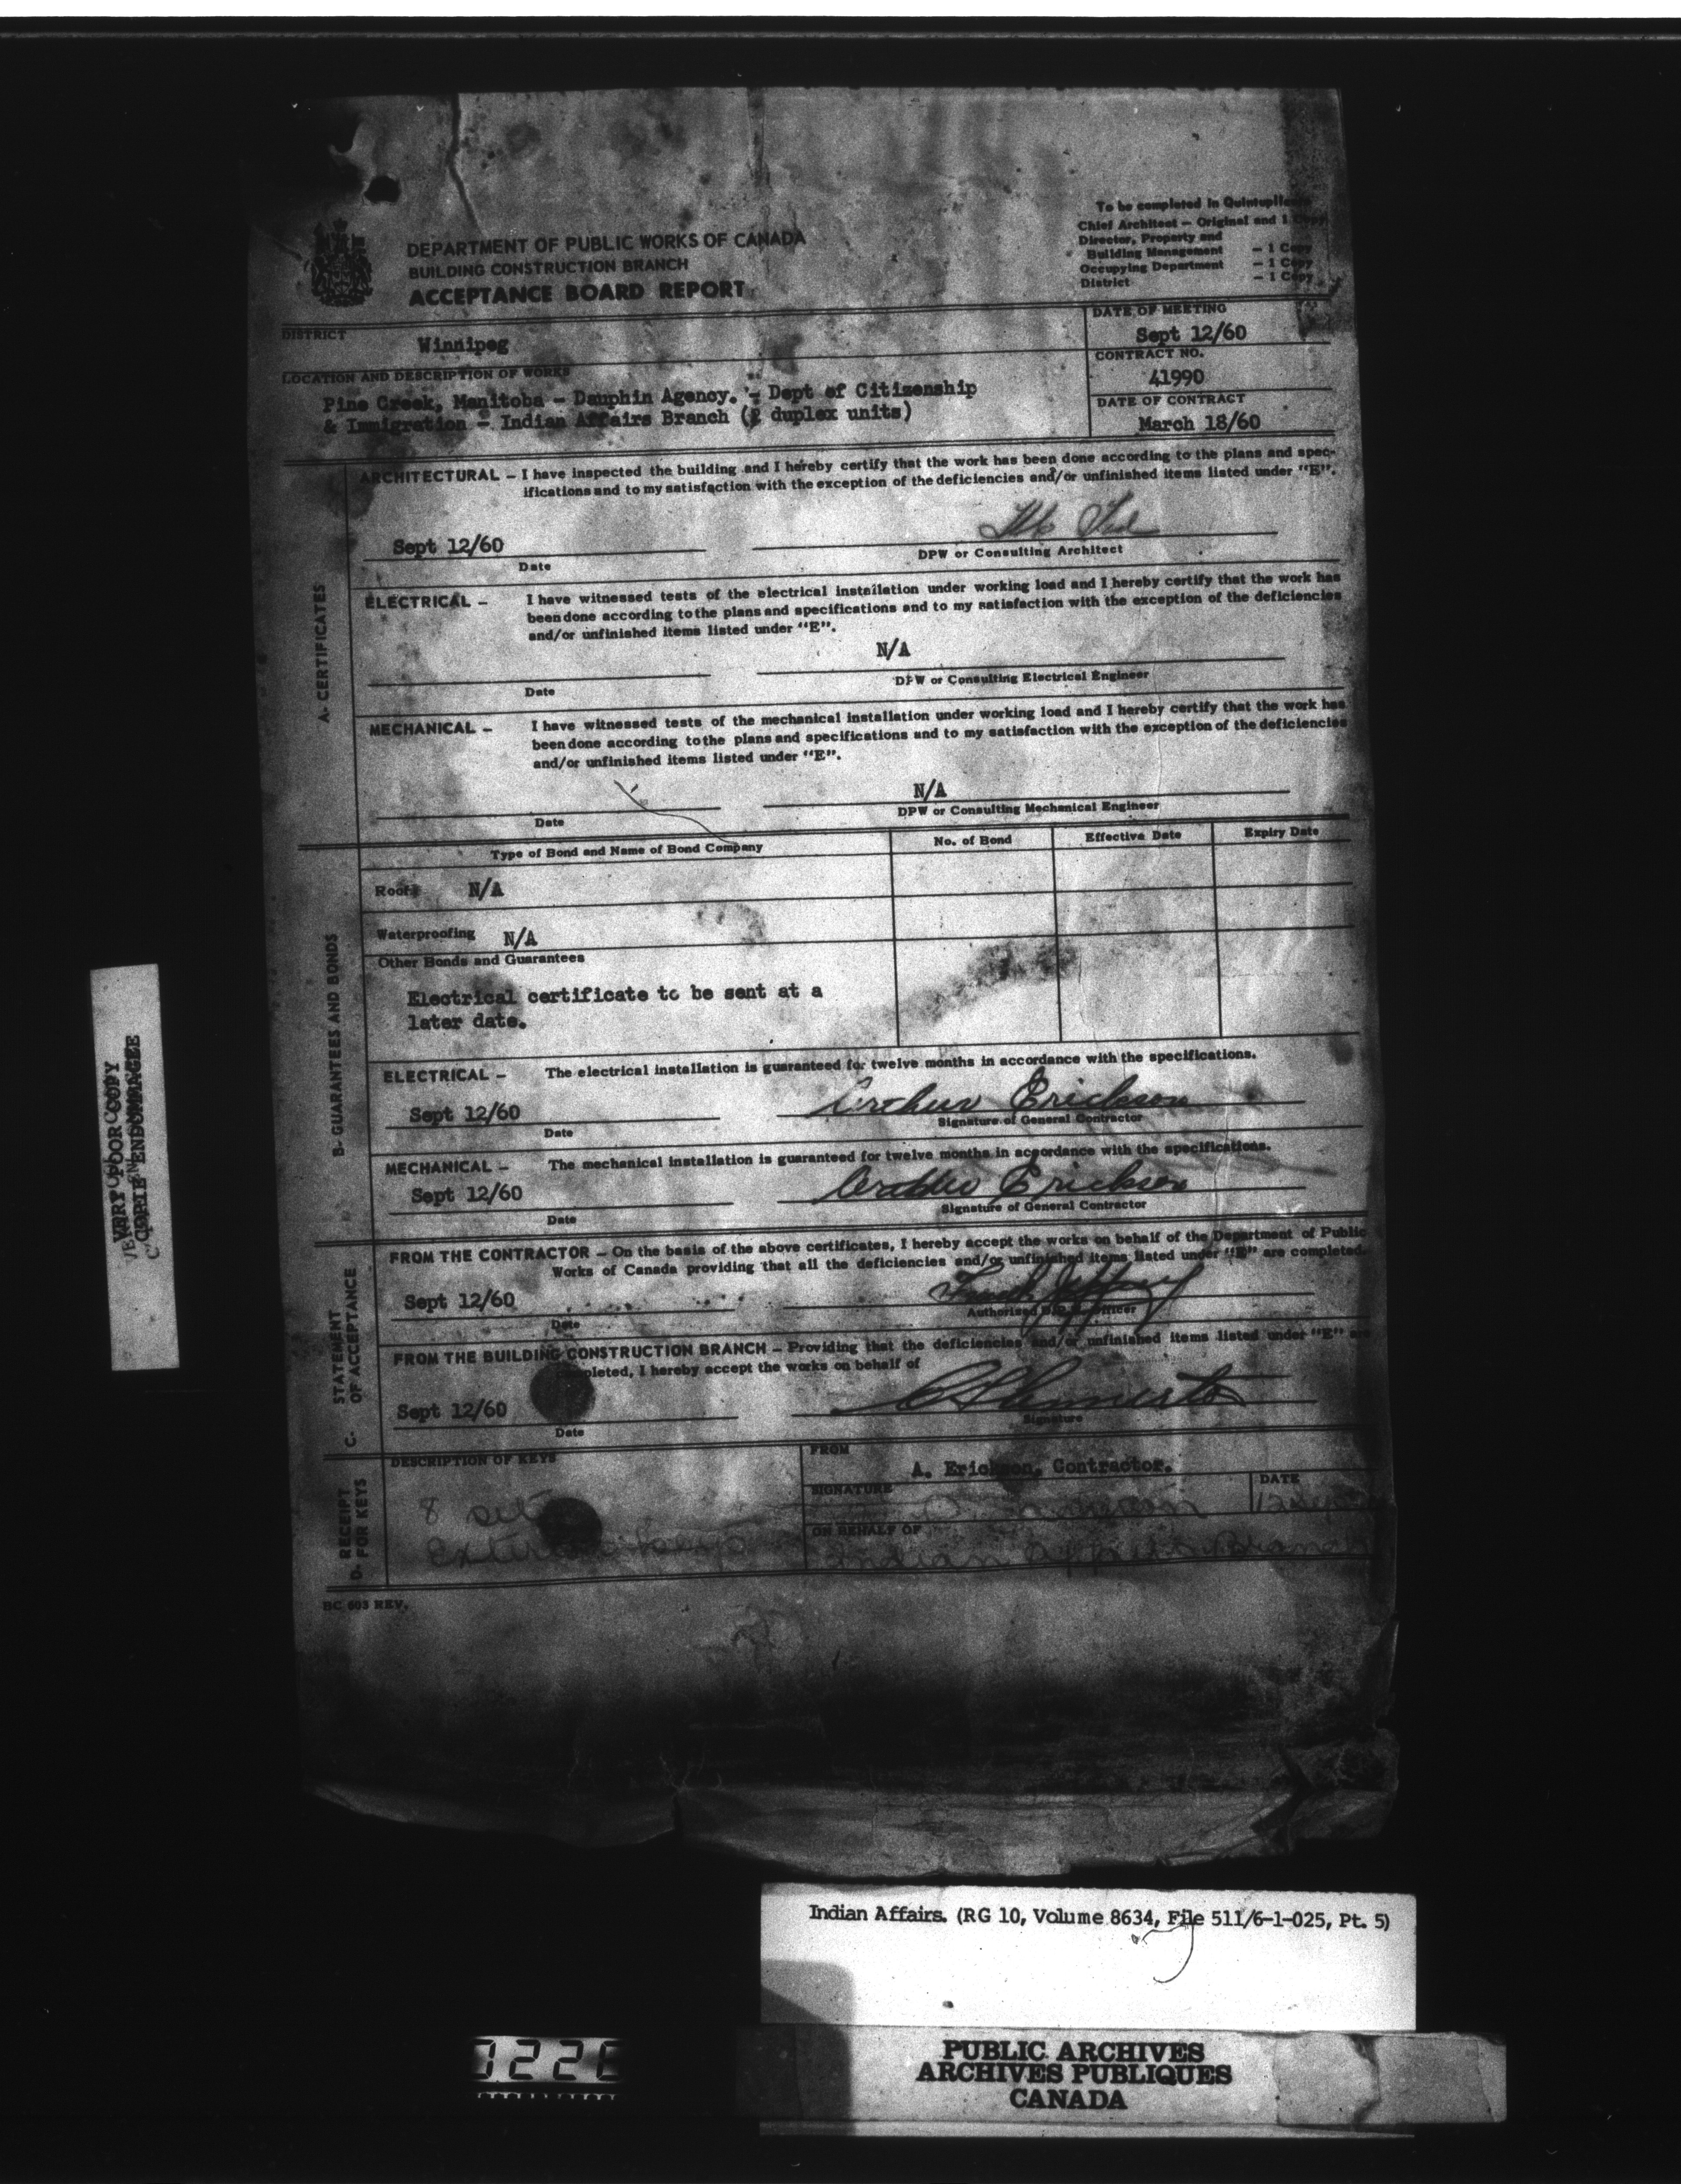 To be completed in Quintuplicate
Chief Architect – Original and 1 Copy
Director, Property and
Building Management – 1 Copy
Occupying Department – 1 Copy
District – 1 Copy
DEPARTMENT OF PUBLIC WORKS OF CANADA
BUILDING CONSTRUCTION BRANCH
ACCEPTANCE BOARD REPORT
DISTRICT
Winnipeg
DATE OF MEETING
Sept 12/60
CONTRACT NO.
41990
LOCATION AND DESCRIPTION OF WORKS
Pine Creek, Manitoba - Dauphin Agency. - Dept of Citizenship
& Immigration - Indian Affairs Branch (2 duplex units)
DATE OF CONTRACT
March 18/60
A- CERTIFICATES
ARCHITECTURAL – I have inspected the building and I hereby certify that the work has been done according to the plans and spec-
ifications and to my satisfaction with the exception of the deficiencies and/or unfinished items listed under "E".
Sept 12/60
Date
DPW or Consulting Architect
ELECTRICAL – I have witnessed tests of the electrical installation under working load and I hereby certify that the work has
been done according to the plans and specifications and to my satisfaction with the exception of the deficiencies
and/or unfinished items listed under "E".
N/A
Date
DPW or Consulting Electrical Engineer
MECHANICAL – I have witnessed tests of the mechanical installation under working load and I hereby certify that the work has
been done according to the plans and specifications and to my satisfaction with the exception of the deficiencies
and/or unfinished items listed under "E".
N/A
Date
DPW or Consulting Mechanical Engineer
B- GUARANTEES AND BONDS
Type of Bond and Name of Bond Company
No. of Bond
Effective Date
Expiry Date
Roof N/A
Waterproofing N/A
Other Bonds and Guarantees
Electrical certificate to be sent at a
later date.
ELECTRICAL – The electrical installation is guaranteed for twelve months in accordance with the specifications.
Sept 12/60
Arthur Erickson
Date
Signature of General Contractor
MECHANICAL – The mechanical installation is guaranteed for twelve months in accordance with the specifications.
Sept 12/60
Erickson
Date
Signature of General Contractor
C. STATEMENT
OF ACCEPTANCE
FROM THE CONTRACTOR – On the basis of the above certificates, I hereby accept the works on behalf of the Department of Public
Works of Canada providing that all the deficiencies and/or unfinished items listed under "E" are completed.
Sept 12/60
Date
Authorized Officer
FROM THE BUILDING CONSTRUCTION BRANCH – Providing that the deficiencies and/or unfinished items listed under "E" are
completed, I hereby accept the works on behalf of
Sept 12/60
Date
Signature
D. RECEIPT
FOR KEYS
DESCRIPTION OF KEYS
8 sets
FROM
A. Erickson, Contractor.
SIGNATURE
DATE
ON BEHALF OF
Indian Affairs Branch
BC 603 REV.
VERY POOR COPY
COPIE ENDOMMAGEE
Indian Affairs. (RG 10, Volume 8634, File 511/6-1-025, Pt. 5)
PUBLIC ARCHIVES
ARCHIVES PUBLIQUES
CANADA